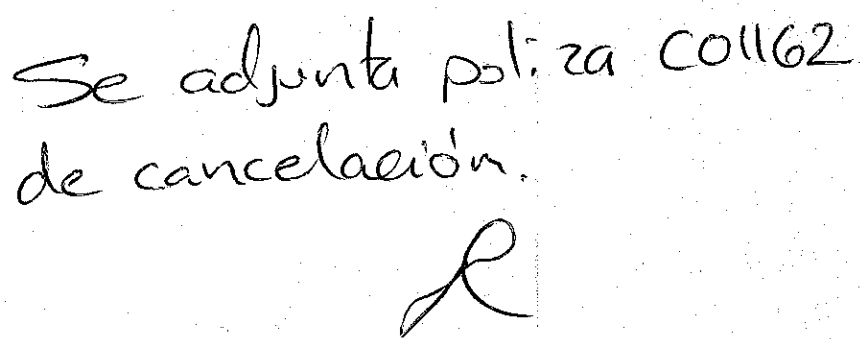 Se adjunta poliza CO1162
de cancelación.